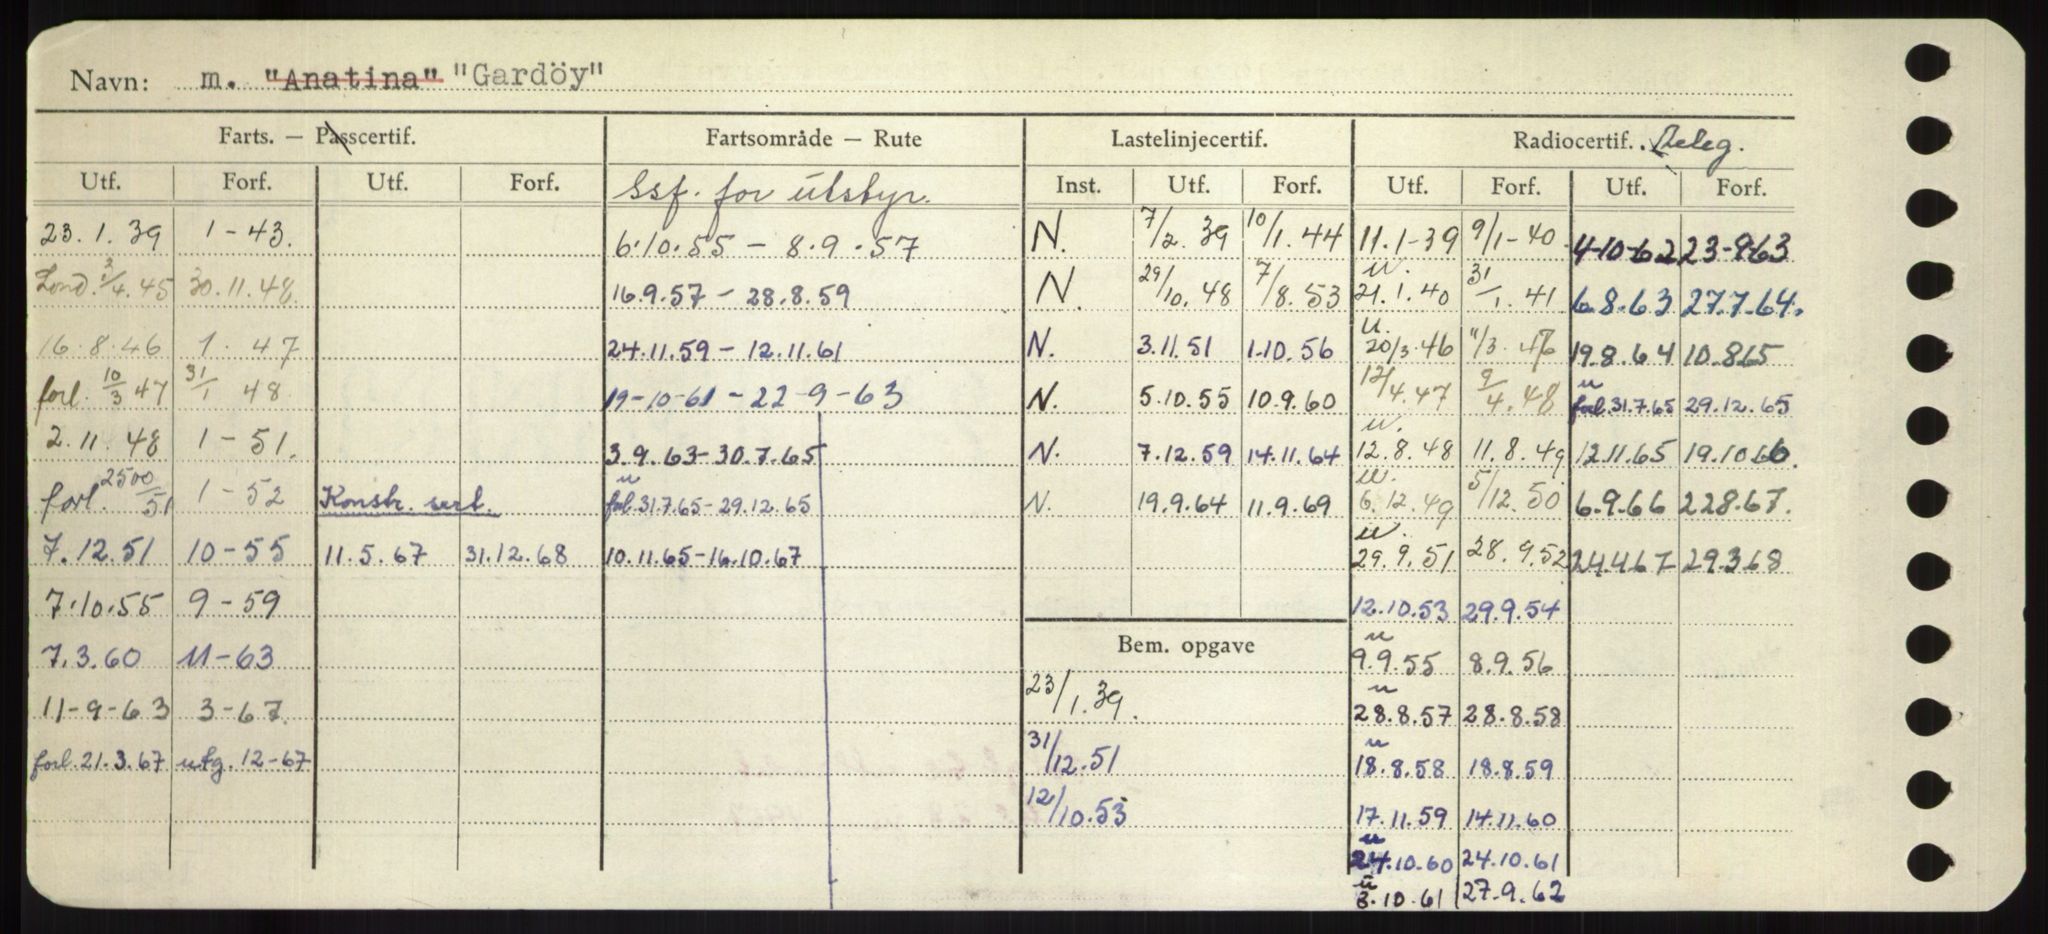 Navn: m. "Anatina" "Gardöy"
Farts. — Passcertif. Fartsområde — Rute Lastelinjecertif. Radiocertif. Teleg.
Utf. Forf. Utf. Forf. Ssf. for utstyr. Inst. Utf. Forf. Utf. Forf. Utf. Forf.
23.1.39 1-43. 6.10.55 - 8.9.57 N. 7/2.39 10/1.44 11.1-39 9/1-40 4-10-62 23-9-63
Lond. 3/4.45 30.11.48 16.9.57 - 28.8.59 N. 29/10.48 7/8.53 u. 21.1.40 31/1.41 6.8.63 27.7.64.
16.8.46 1. 47 24.11.59 - 12.11.61 N. 3.11.51 1.10.56 u. 20/3.46 11/3.47 19.8.64 10.8.65
forl. 10/3 47 31/1 48 19-10-61 - 22-9-63 N. 5.10.55 10.9.60 12/4.47 9/4.48 u forl. 31.7.65 29.12.65
2.11.48 1-51. 3.9.63-30.7.65 N. 7.12.59 14.11.64 u. 12.8.48 11.8.49 12.11.65 19.10.66.
forl. 2500/51 1-52 Konstr. sert. u forl. 31.7.65-29.12.65 N. 19.9.64 11.9.69 u. 6.12.49 5/12.50 6.9.66 22.8.67.
7.12.51 10-55 11.5.67 31.12.68 10.11.65-16.10.67 u. 29.9.51 28.9.52 24.4.67 29.3.68
7.10.55 9-59 12.10.53 29.9.54
7.3.60 11-63 Bem. opgave u 9.9.55 8.9.56
11-9-63 3-67. 23/1.39. u 28.8.57 28.8.58
forl. 21.3.67 utg. 12-67 31/12.51 u 18.8.58 18.8.59
12/10.53 17.11.59 14.11.60
u 24.10.60 24.10.61
u 3.10.61 27.9.62